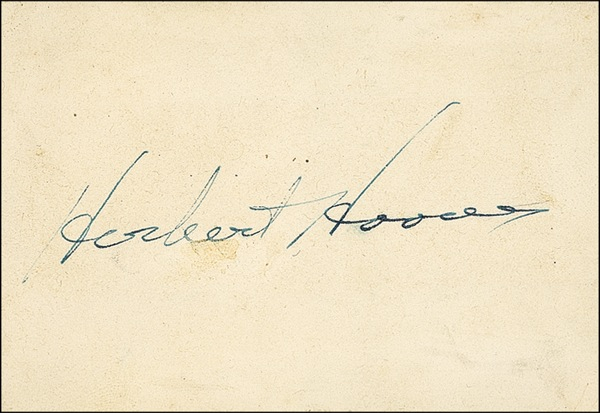 Herbert Hoover